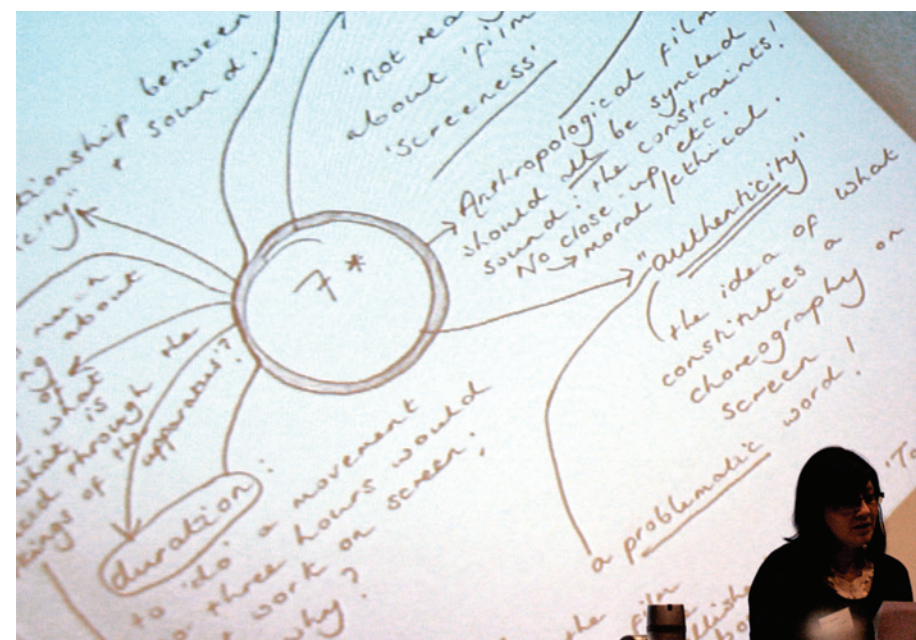 between
sound.
"not
about 'film
'screeness'
Anthropological film
should all be synched
sound: the constraints!
No close-up etc.
→ moral/ethical.
"authenticity"
(the idea of what
constitutes a
choreography on
screen!
a problematic word!
7*
about
of
what
what is the
through the
of the
apparatus'?
duration:
to 'do' a movement
three hours would
work on screen;
why?
the film